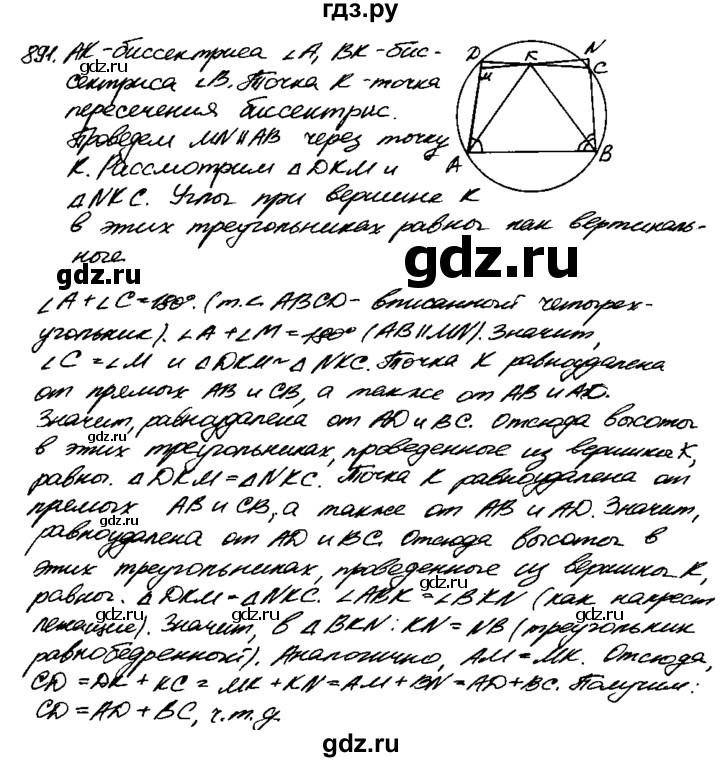 гдз.ру
891. АК-биссектриса ∠А, ВК-бис-
сектриса ∠В. Точка К-точка
пересечения биссектрис.
Проведем MN∥АВ через точку
К. Рассмотрим △DKM и
△NKC. Углы при вершине К
в этих треугольниках равны как вертикаль-
ные.
D K N
M C
A B
gdz.ru
∠A+∠C=180°. (т.к. ABCD- вписанный четырех-
угольник). ∠A+∠M=180° (AB∥MN). Значит,
∠C=∠M и △DKM~△NKC. Точка К равноудалена
от прямых АВ и СВ, а также от АВ и AD.
Значит, равноудалена от AD и BC. Отсюда высоты
в этих треугольниках, проведенные из вершины К,
равны. △DKM=△NKC. Точка К равноудалена от
прямых АВ и СВ, а также от АВ и AD. Значит,
равноудалена от AD и BC. Отсюда высоты в
этих треугольниках, проведенные из вершины К,
равны. △DKM=△NKC. ∠ABK=∠BKN (как накрест
лежащие). Значит, в △BKN: KN=NB (треугольник
равнобедренный). Аналогично, AM=MK. Отсюда,
CD=DK+KC=MK+KN=AM+BN=AD+BC. Получим:
CD=AD+BC, ч.т.д.
gdz.ru
gdz.ru
gdz.ru
gdz.ru
gdz.ru
gdz.ru
gdz.ru
gdz.ru
gdz.ru
gdz.ru
gdz.ru